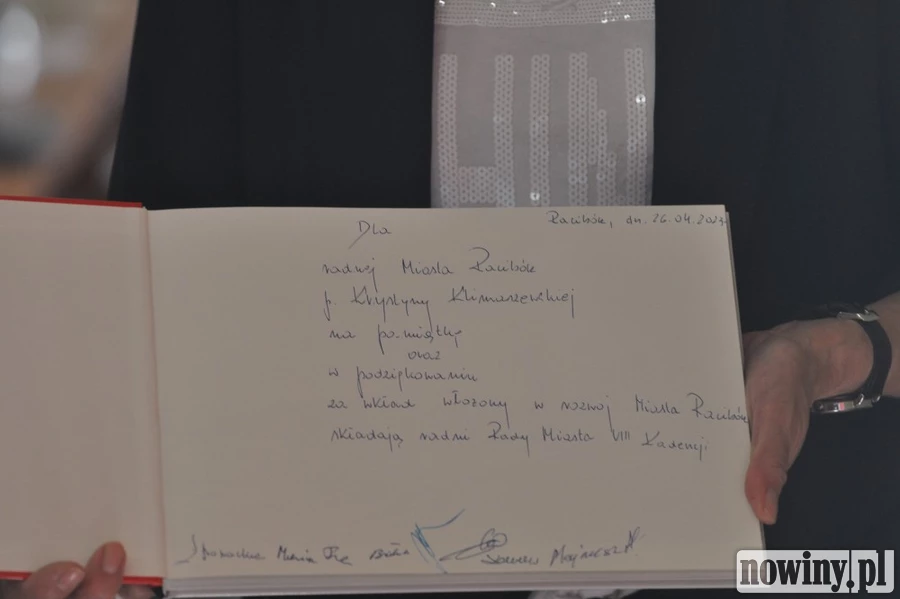 Racibórz, dn. 26.04.2024
Dla
radnej Miasta Racibórz
p. Krystyny Klimaszewskiej
na pamiątkę
oraz
w podziękowaniu
za wkład włożony w rozwój Miasta Racibórz
składają radni Rady Miasta VIII Kadencji
nowiny.pl